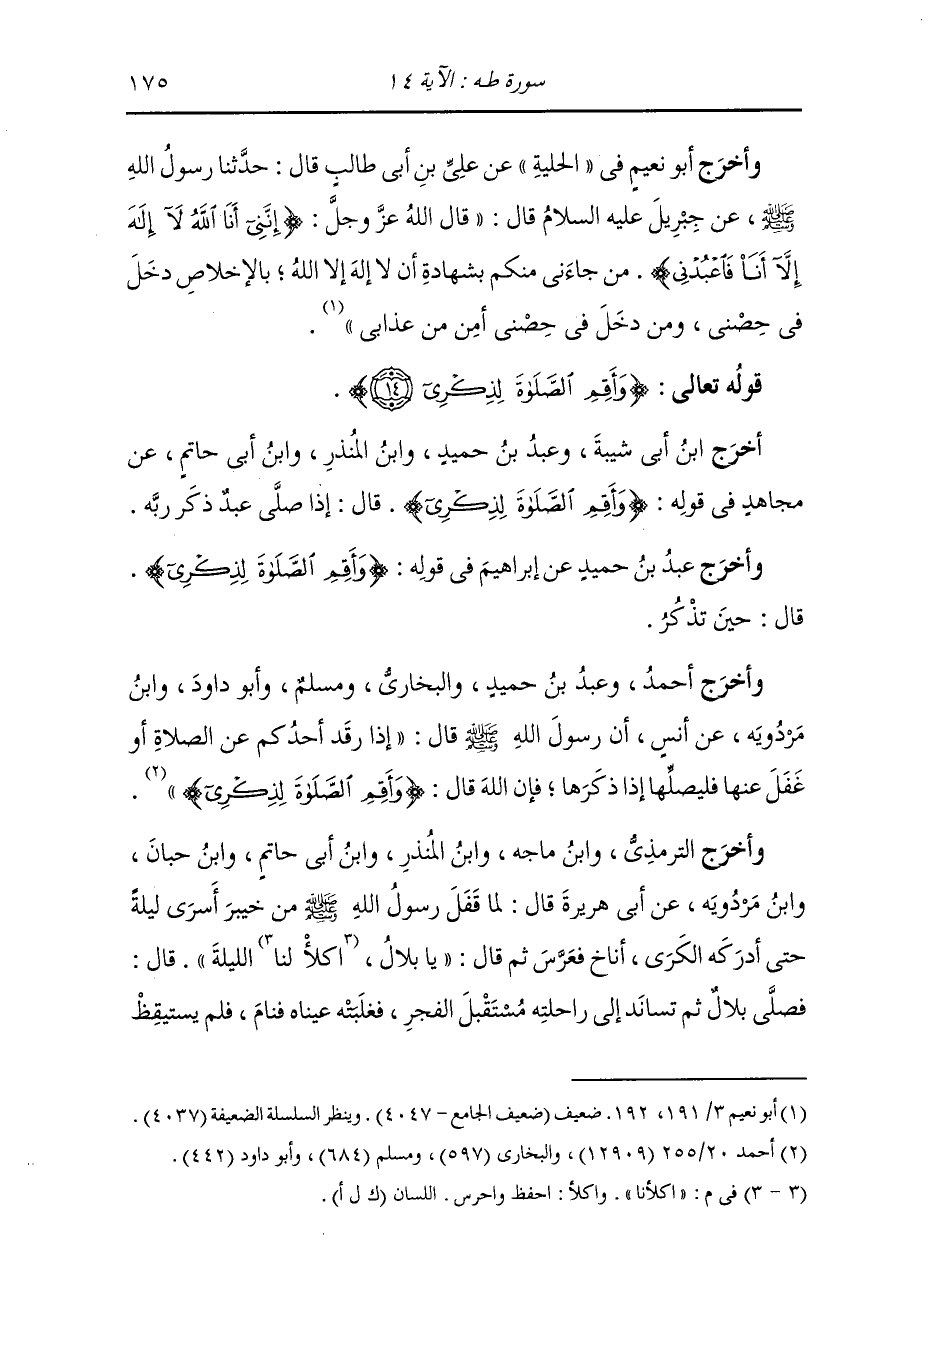 سورة طه : الآية ١٤ ١٧٥
وأخرَج أبو نعيمٍ فى « الحليةِ » عن علىِّ بنِ أبى طالبٍ قال : حدَّثنا رسولُ اللهِ
ﷺ ، عن جِبْرِيلَ عليه السلامُ قال : « قال اللهُ عزَّ وجلَّ : ﴿إِنَّنِىٓ أَنَا ٱللَّهُ لَآ إِلَٰهَ
إِلَّآ أَنَا۠ فَٱعْبُدْنِى﴾ . من جاءَنى منكم بشهادةِ أن لا إلهَ إلا اللهُ ؛ بالإخلاصِ دخَلَ
فى حِصْنى ، ومن دخَلَ فى حِصْنى أمِن من عذابى »(١) .
قولُه تعالى : ﴿وَأَقِمِ ٱلصَّلَوٰةَ لِذِكْرِىٓ ١٤﴾ .
أخرَج ابنُ أبى شيبةَ ، وعبدُ بنُ حميدٍ ، وابنُ المُنذرِ ، وابنُ أبى حاتمٍ ، عن
مجاهدٍ فى قولِه : ﴿وَأَقِمِ ٱلصَّلَوٰةَ لِذِكْرِىٓ﴾ . قال : إذا صلَّى عبدٌ ذكَر ربَّه .
وأخرَج عبدُ بنُ حميدٍ عن إبراهيمَ فى قولِه : ﴿وَأَقِمِ ٱلصَّلَوٰةَ لِذِكْرِىٓ﴾ .
قال : حينَ تذْكُرُ .
وأخرَج أحمدُ ، وعبدُ بنُ حميدٍ ، والبخارىُّ ، ومسلمٌ ، وأبو داودَ ، وابنُ
مَرْدُويَه ، عن أنسٍ ، أن رسولَ اللهِ ﷺ قال : « إذا رقَد أحدُكم عن الصلاةِ أو
غَفَلَ عنها فليصلِّها إذا ذكَرَها ؛ فإن اللهَ قال : ﴿وَأَقِمِ ٱلصَّلَوٰةَ لِذِكْرِىٓ﴾ »(٢) .
وأخرَج الترمذِىُّ ، وابنُ ماجه ، وابنُ المُنذرِ ، وابنُ أبى حاتمٍ ، وابنُ حبانَ ،
وابنُ مَرْدُويَه ، عن أبى هريرةَ قال : لما قَفَلَ رسولُ اللهِ ﷺ من خيبرَ أَسرَى ليلةً
حتى أدرَكه الكَرَى ، أناخ فعَرَّسَ ثم قال : « يا بلالُ ، (٣اكلأْ لنا٣) الليلةَ » . قال :
فصلَّى بلالٌ ثم تساندَ إلى راحلتِه مُسْتَقْبِلَ الفجرِ ، فغلَبَتْه عيناه فنامَ ، فلم يستيقِظْ
(١) أبو نعيم ٣/ ١٩١، ١٩٢. ضعيف (ضعيف الجامع - ٤٠٤٧) . وينظر السلسلة الضعيفة (٤٠٣٧) .
(٢) أحمد ٢٠/ ٢٥٥ (١٢٩٠٩) ، والبخارى (٥٩٧) ، ومسلم (٦٨٤) ، وأبو داود (٤٤٢) .
(٣ - ٣) فى م : « اكلأنا » . واكلأ : احفظ واحرس . اللسان (ك ل أ) .